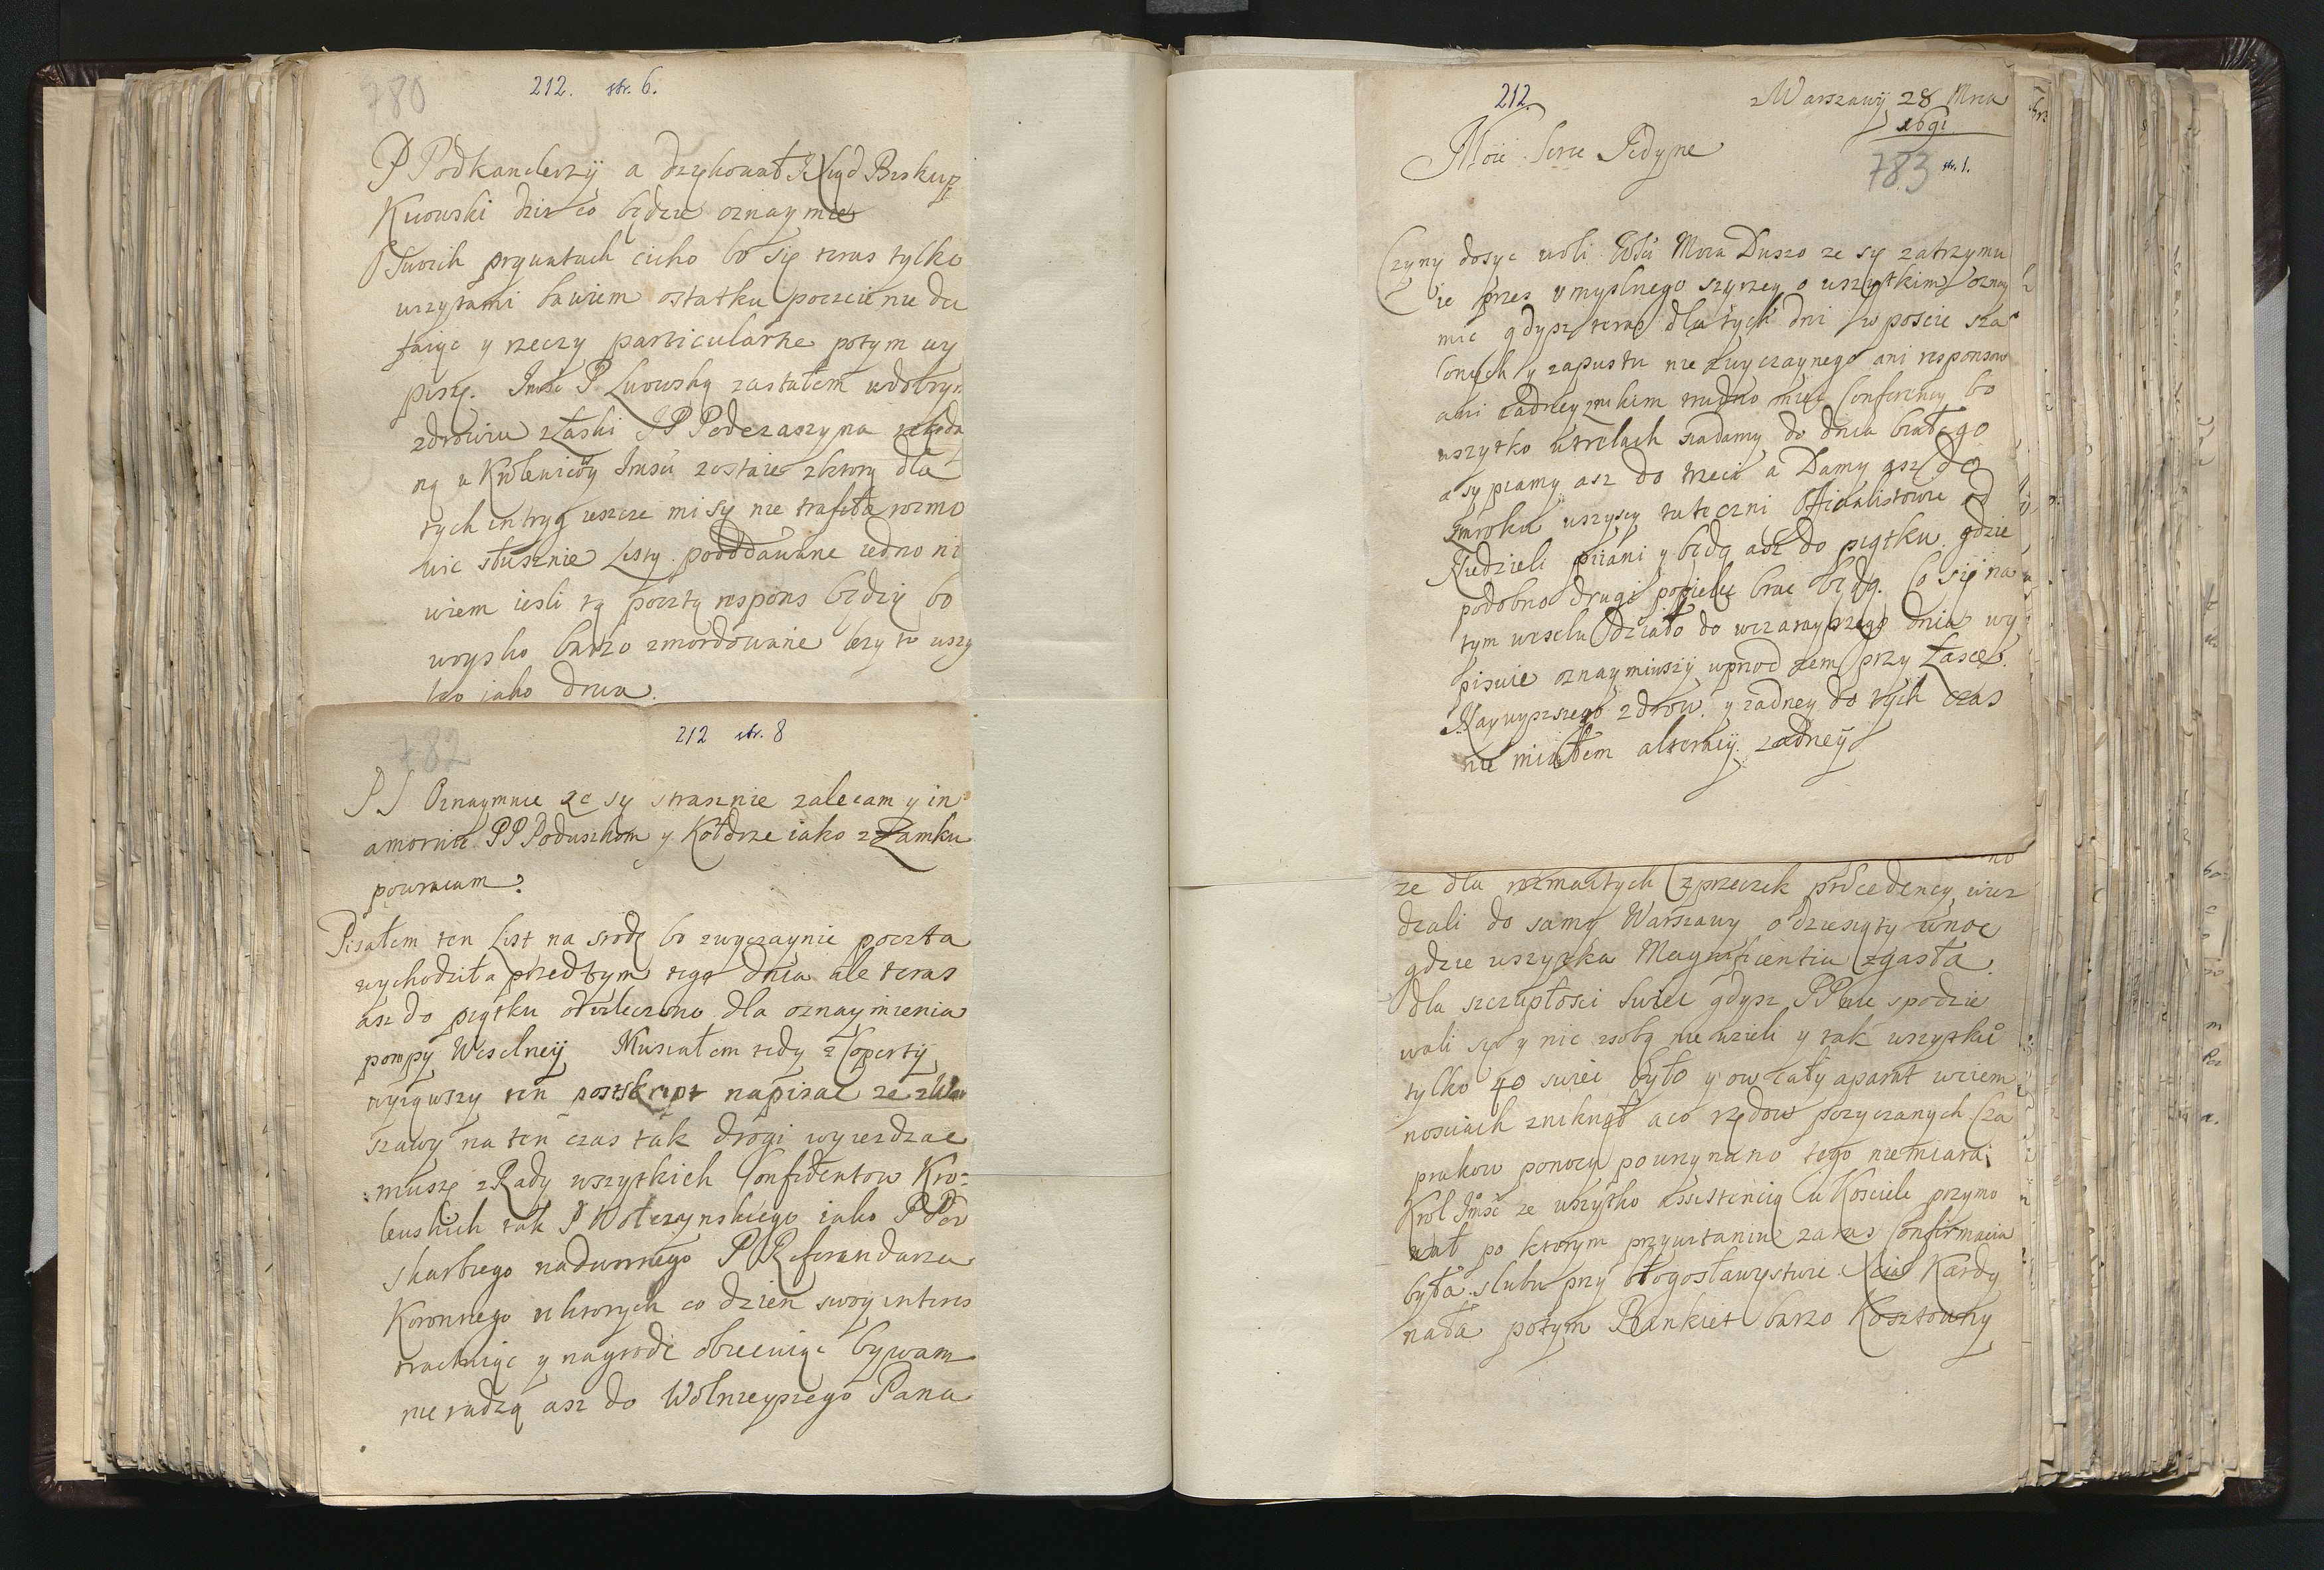 780
212. str. 6.
P Podkanclerzÿ a dziękował Xiąd Biskup
Kiiowski dzis co będzie oznaymię
O Swoich prywatach cicho bo się teras tylko
wizytami bawiem ostatku poczcie nie du
faiąc y rzeczy particularne potym wy
piszę. Imsc P Lwowską zastałem w dobrym
zdrowiu z łaski JP Podczaszyna
ną u Krolewicow Imsci zostaie z ktorą dla
tych intryg ieszcze mi sy nie trafiło rozmo
wic słusznie Listy pooddawane iedno ni
wiem iesli tą pocztą respons będzie bo
woysko barzo zmordowane lezy to wszy
tko iako drwa.
782
212 str. 8
PS Oznaymuie ze sy strasznie zalecam y in
amoruie PP Poduszkom y Kołdrze iako z Zamku
powracam.
Pisałem ten List na srodę bo zwyczaynie poczta
wychodziła przedtym tego dnia ale teras
asz do piątku odwleczono dla oznaymienia
pompy Weselneÿ Musiałem tedy z Coperty
wyiąwszy ten postskript napisac ze z War
szawy na ten czas tak drogi wyiezdzac
muszę z Rady wszytkich Confidentow Kro=
lewskich tak P Kołczynskiego iako P Pod
skarbiego nadwornego P Referendarza
Koronnego u ktorych co dzien swoy interes
tractuiąc y nagrode obiecuiąc bywam
nie radzą asz do Wolnieyszego Pana
212.
z Warszawÿ 28 Mrca
1691
Moie Serce Jedyne
783 str. 1.
Czynię dosyc woli WMsci Moia Duszo ze sy zatrzymu
ie przes umyslnego szyrzey o wszytkim oznay
mic gdysz teras dla tych dni w poscie sza
lonych y zapustu nie zwyczaynego ani responsow
ani zadney z nikiem trudno miec Conferency bo
wszytko w trelach siadamy do dnia białego
a sypiamy asz do trzeci a Damy asz do
zmroku wszyscy tuteczni Officialistowie od
Niedzieli piiani y będą asz do piątku gdzie
podobno drugi popielec brac będą. Co się na
tym weselu działo do wczorayszego dnia wy
pisuie oznaymiwszÿ wprzod zem przy Łasce
Naywyszszego zdrow y zadney do tych czas
nie miałem alteracij zadneÿ
ze dla rozmaitych sprzeczek precedency wiez
dzali do samy Warszawy o dziesiąty w noc
gdzie wszytka Magnificentia zgasła.
dla szczupłosci swiec gdysz PP nie spodzie
wali się y nic z sobą nie wzieli y tak wszytkie
tylko 40 swiec było y ow cały aparat w ciem
nosciach zniknął a co rzędow pozyczanych Cza
prakow ponocy pourzynano tego niemiara
Krol Imsc ze wszytko assistencią w Kosciele przymo
wał po ktorym przywitaniu zaras Confirmacia
była slubu przy błogosławiestwie Xcia Kardy
nała potym Bankiet barzo Kosztowny